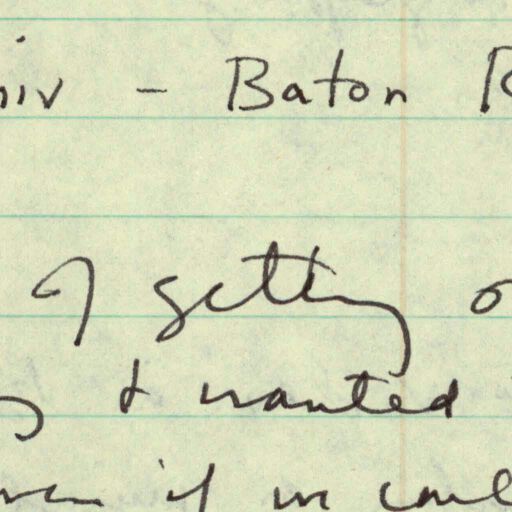 niv - Baton R
of getting o
& wanted
even if we coul